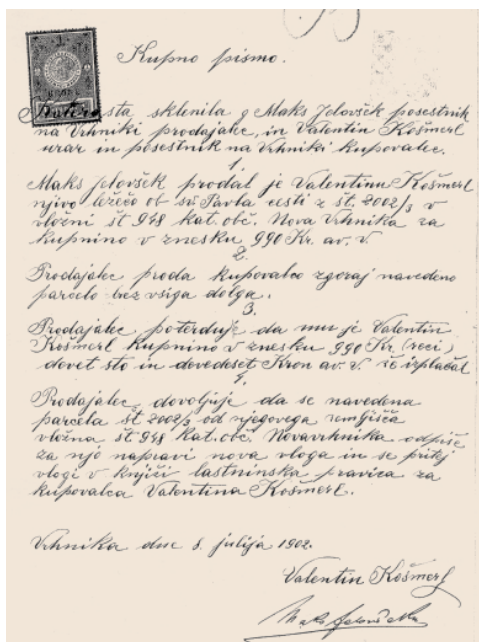 Kupno pismo.
Katero sta sklenila g Maks Jelovšek posestnik
na Vrhniki prodajalec, in Valentin Košmerl
urar in posestnik na Vrhniki kupovalec.
1.
Maks Jelovšek prodal je Valentinu Košmerl
njivo ležečo ob sv. Pavla cesti z št. 2002/3 v
vložni št 948 kat. obč. Nova Vrhnika za
kupnino v znesku 990 Kr. av. v.
2.
Prodajalec proda kupovalco zgoraj navedeno
parcelo bez vsiga dolga.
3.
Prodajalec poterduje da mu je Valentin
Košmerl kupnino v znesku 990 Kr. (reci)
devet sto in devedeset Kron av. v. že izplačal
4.
Prodajalec dovoljuje da se navedena
parcela št 2002/3 od njegovega zemljišča
vložna št 948 kat. obč. Novavrhnika odpiše
za njo napravi nova vloga in se pritej
vlogi v knjiži lastninska pravica za
kupovalca Valentina Košmerl.
Vrhnika dne 8. julija 1902.
Valentin Košmerl
Maks Jelovšek